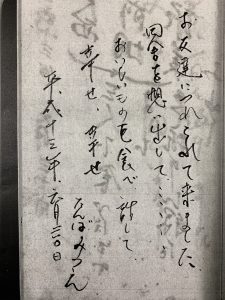 お友達につれられて来ました。
田舎を想い出して……
おいしいもの色々食べ、話して
幸せ、幸せ
とんぼみつけん
平成十三年、六月三〇日